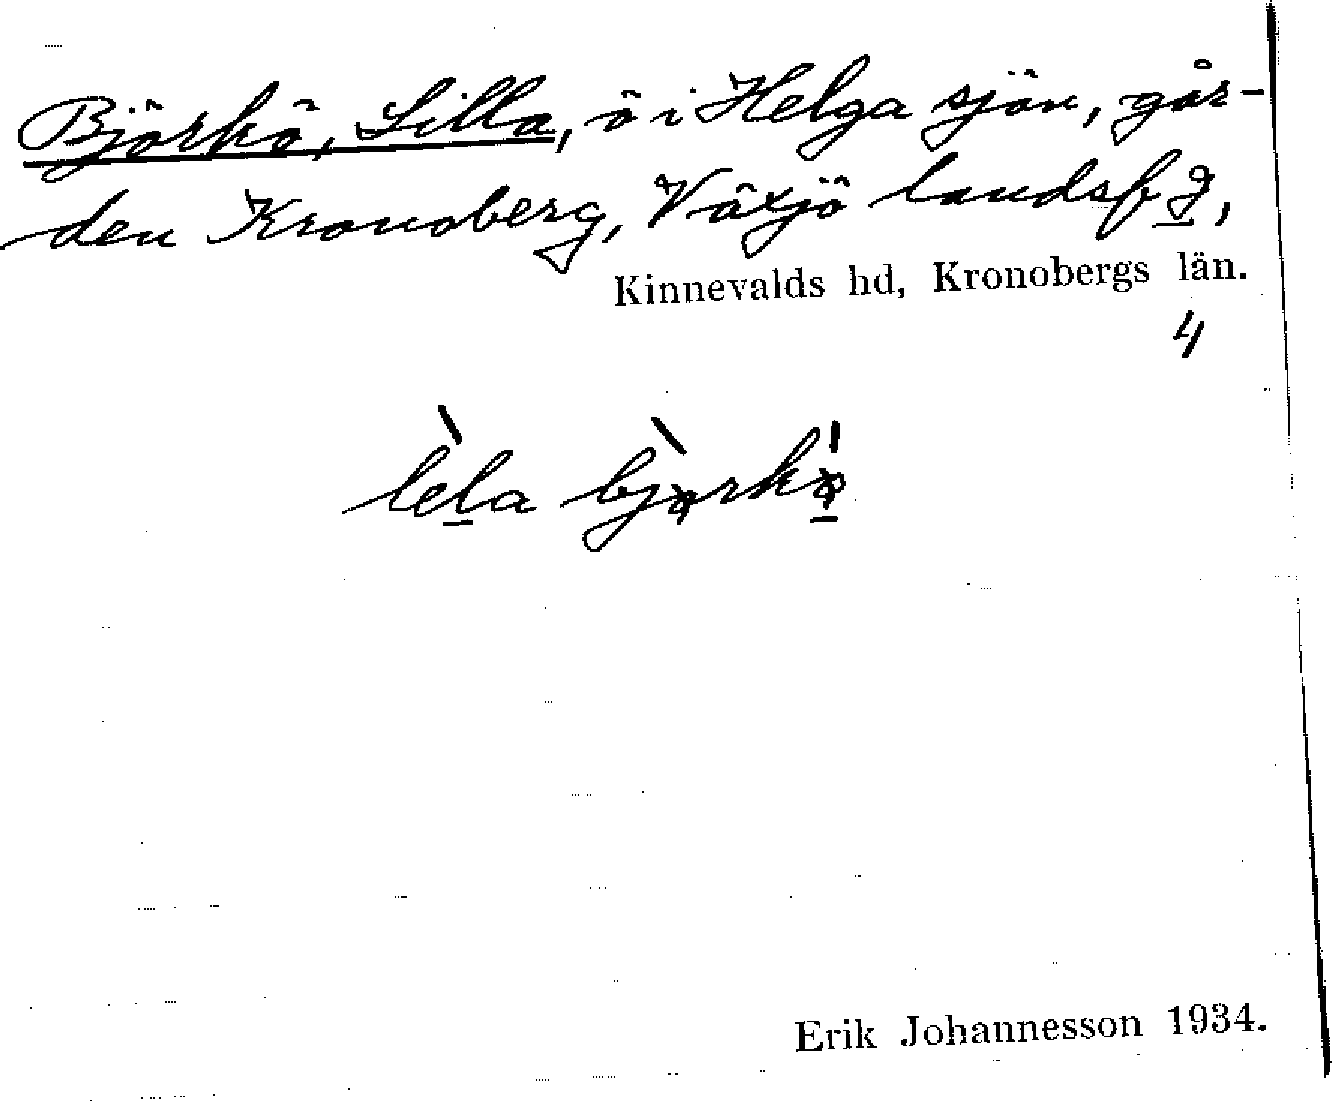 Björkö, Lilla, ö i Helga sjön, går-
den Kronoberg, Växjö landsf g,
Kinnevalds hd, Kronobergs län.
4
Erik Johannesson 1934.